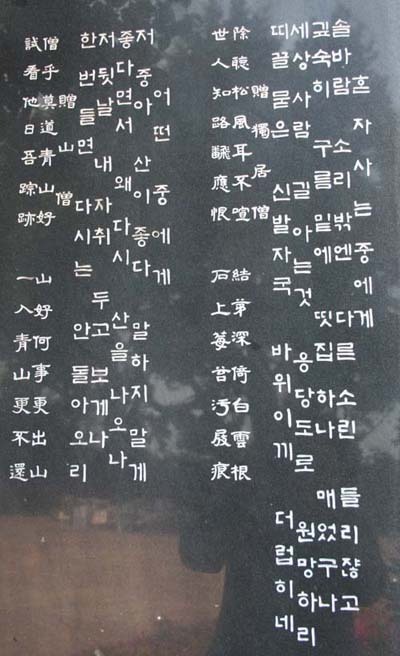 혼자 사는 중에게
솔바람 소리 밖엔 다른 소린 들리쟎고
깊숙히 구름 밑에 띳집 하나 매었구나
세상사람 길 아는것 응당 도로 원망하리
띠끌 묻은 신발자국 바위이끼 더럽히네
贈獨居僧
除聽松風耳不喧 結茅深倚白雲根
世人知路飜應恨 石上莓苔汚屐痕
어떤 중에게
저 중아 산이 좋다 말하지 말게
좋다면서 왜 다시 산을 나오나
저 뒷날 내 자취 두고 보게나
한번 들면 다시는 안 돌아오리
贈山僧
僧乎莫道青山好 山好何事更出山
試看他日吾踪跡 一入青山更不還